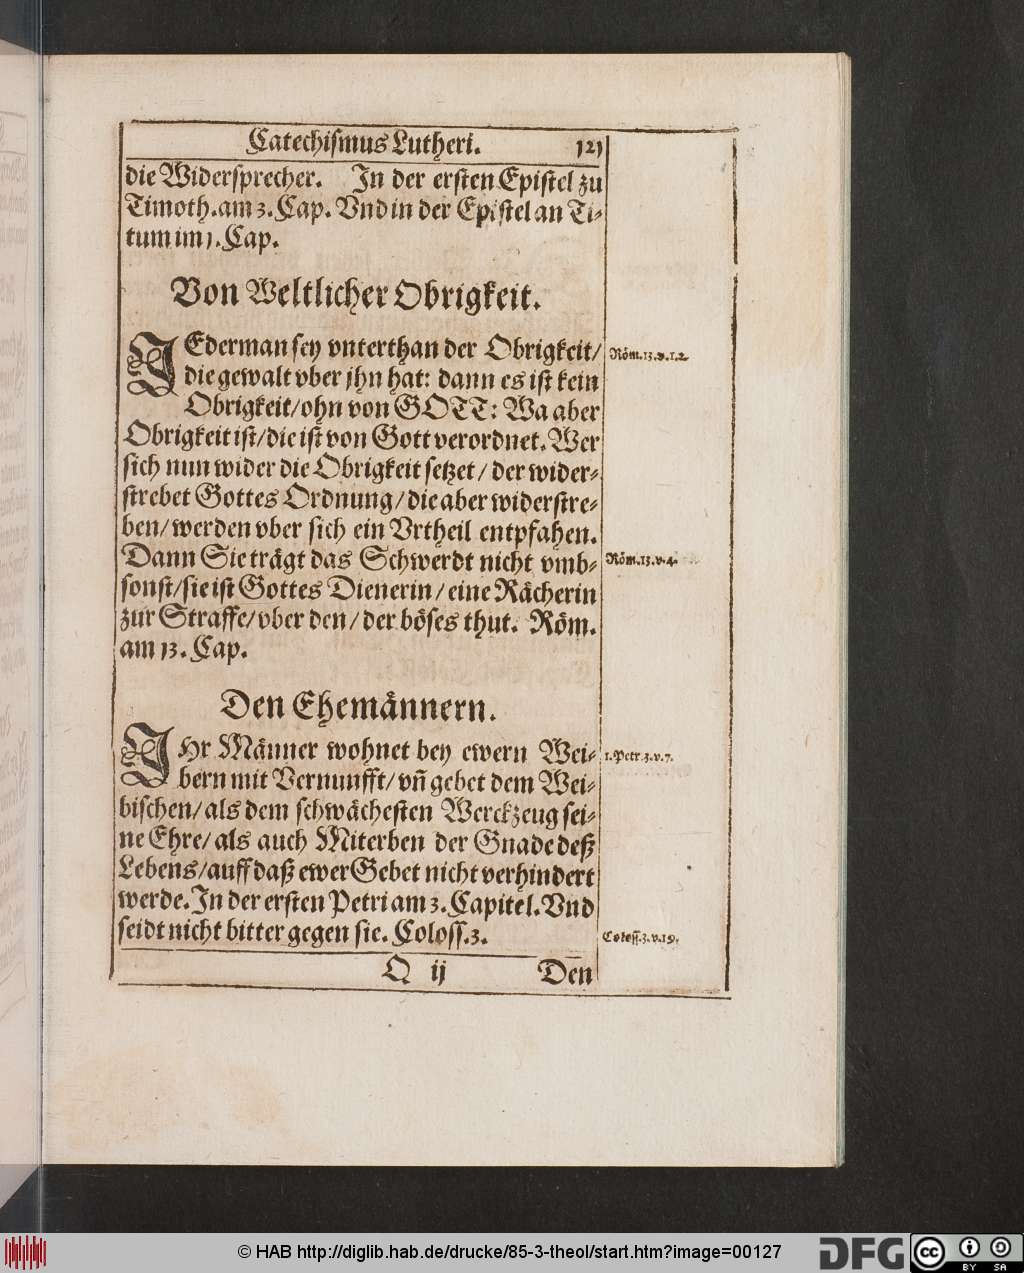 Catechismus Lutheri. 121
die Widersprecher. In der ersten Epistel zu
Timoth. am 3. Cap. Vnd in der Epistel an Ti-
tum im 1. Cap.
Von Weltlicher Obrigkeit.
JEderman sey vnterthan der Obrigkeit/
die gewalt vber jhn hat: dann es ist kein
Obrigkeit/ ohn von GOTT: Wa aber
Obrigkeit ist/ die ist von Gott verordnet. Wer
sich nun wider die Obrigkeit setzet/ der wider-
strebet Gottes Ordnung/ die aber widerstre-
ben/ werden vber sich ein Vrtheil entpfahen.
Dann Sie trägt das Schwerdt nicht vmb-
sonst/ sie ist Gottes Dienerin/ eine Rächerin
zur Straffe/ vber den/ der böses thut. Röm.
am 13. Cap.
Röm. 13. v. 1. 2.
Röm. 13. v. 4.
Den Ehemännern.
JHr Männer wohnet bey ewern Wei-
bern mit Vernunfft/ vñ gebet dem Wei-
bischen/ als dem schwächesten Werckzeug sei-
ne Ehre/ als auch Miterben der Gnade deß
Lebens/ auff daß ewer Gebet nicht verhindert
werde. In der ersten Petri am 3. Capitel. Vnd
seidt nicht bitter gegen sie. Coloss. 3.
1. Petr. 3. v. 7.
Coloss. 3. v. 19.
Q ij Den
© HAB http://diglib.hab.de/drucke/85-3-theol/start.htm?image=00127
DFG
cc BY SA